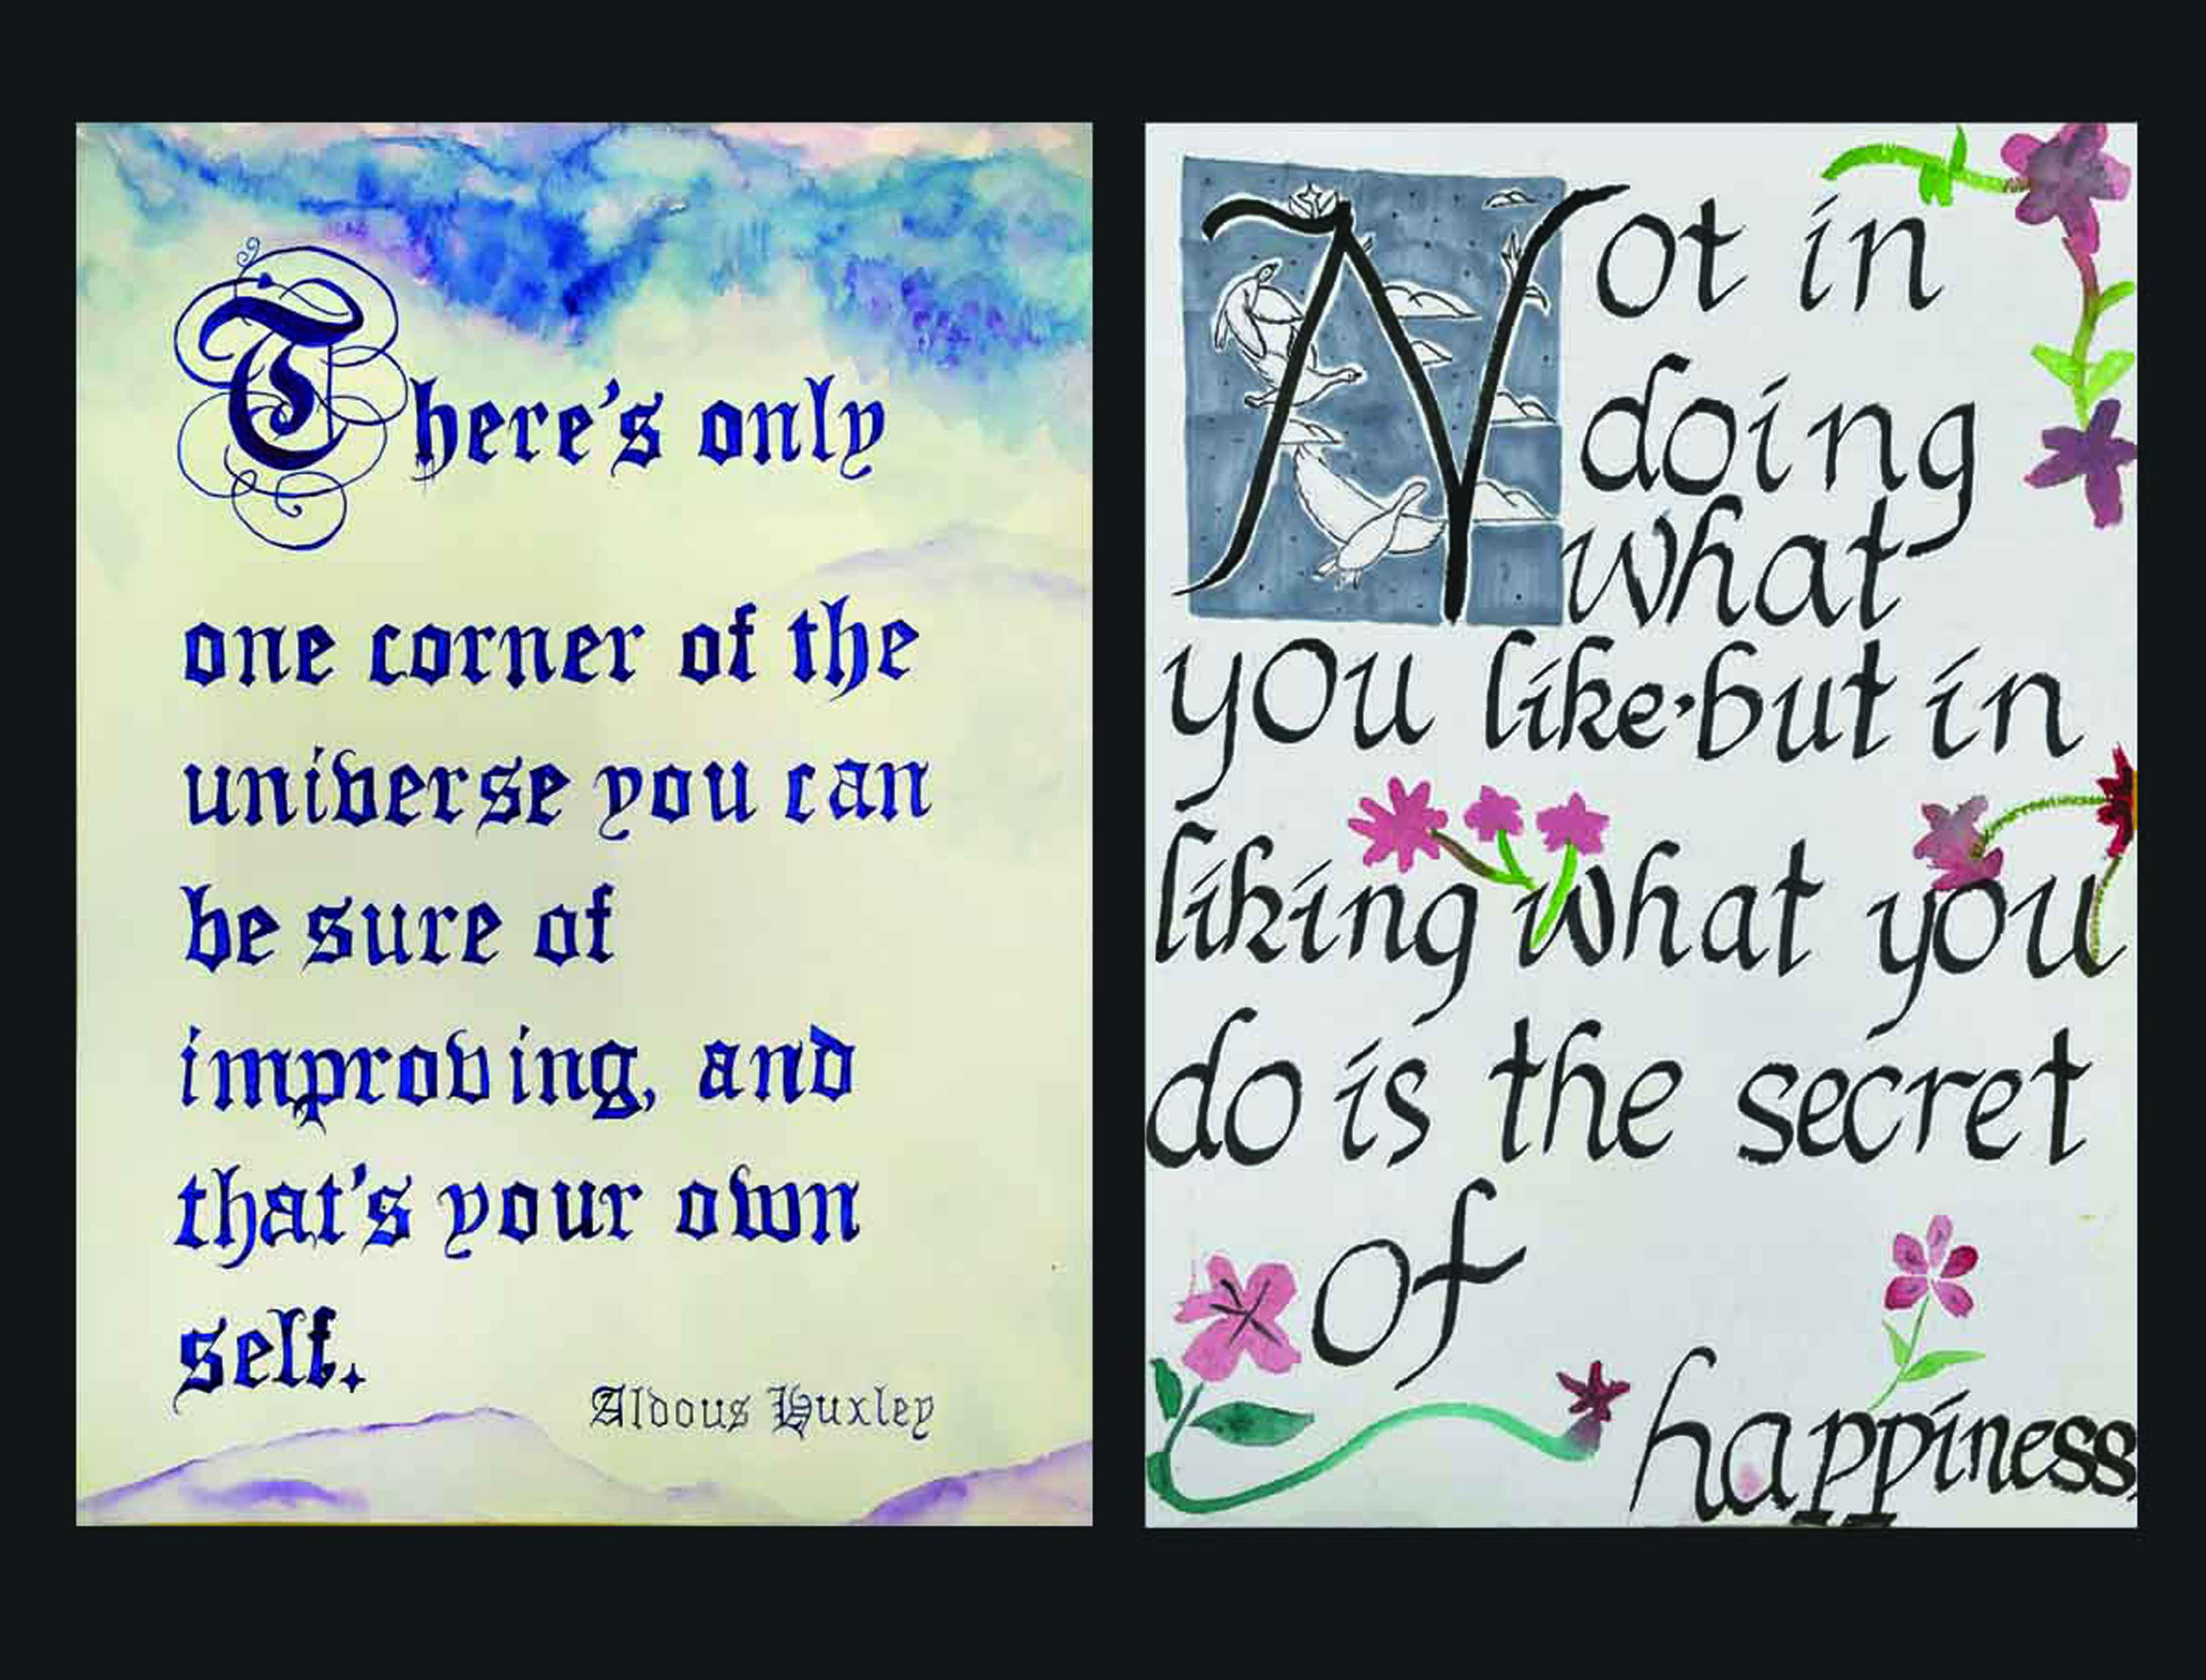 There's only
one corner of the
universe you can
be sure of
improving, and
that's your own
self.
Aldous Huxley
Not in
doing
what
you like, but in
liking what you
do is the secret
of
happiness.